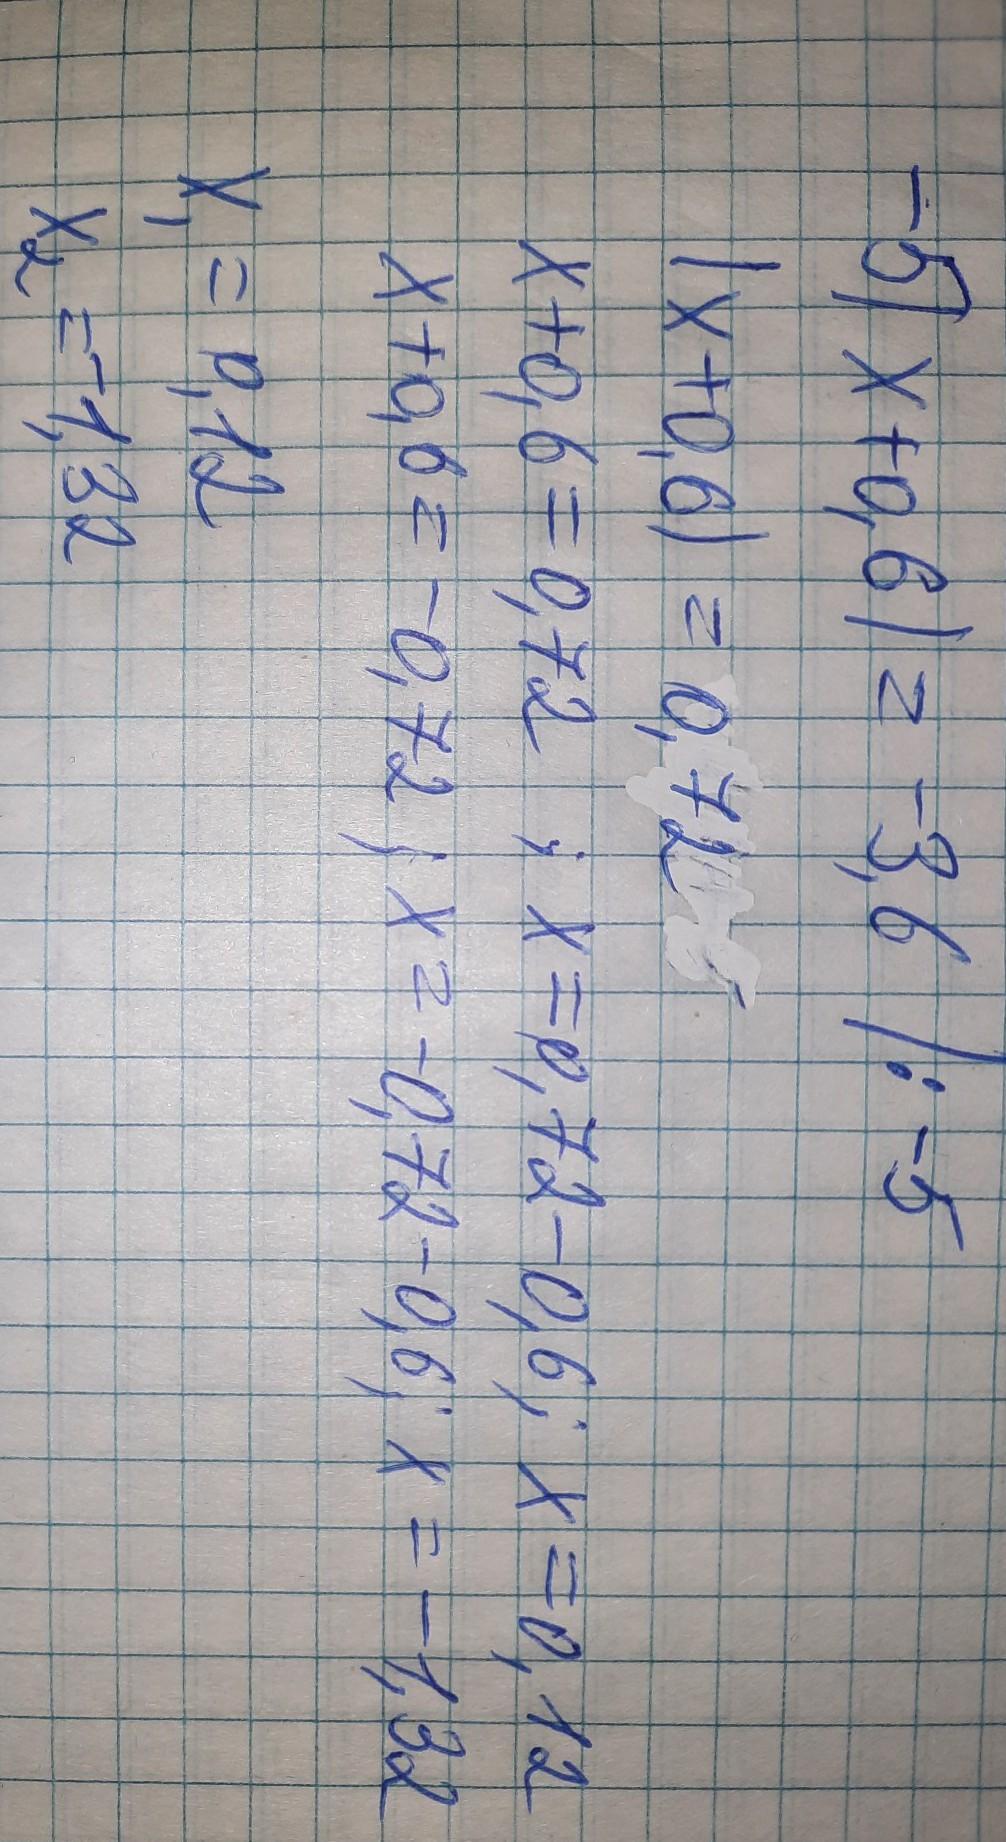 -5|x+0,6|=-3,6 |:-5
|x+0,6|=0,72
x+0,6=0,72 ; x=0,72-0,6; x=0,12
x+0,6=-0,72; x=-0,72-0,6; x=-1,32
x₁=0,12
x₂=-1,32